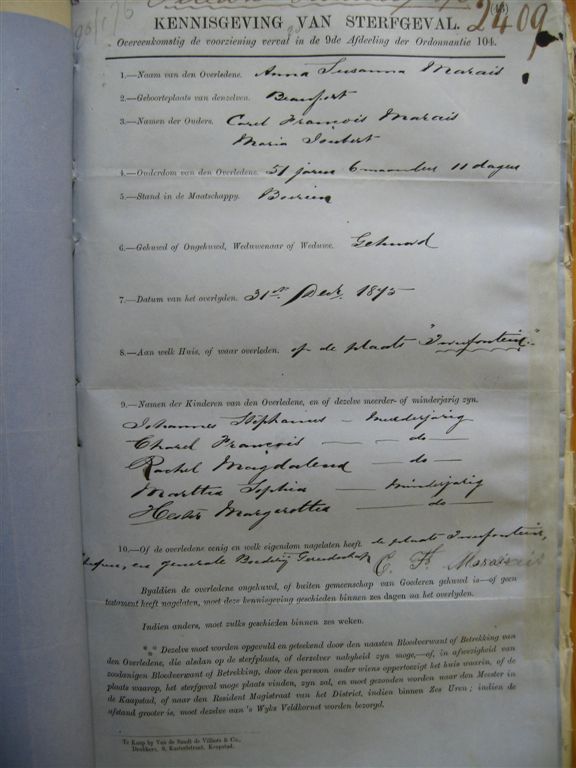 2409
KENNISGEVING VAN STERFGEVAL.
Overeenkomstig de voorziening vervat in de 9de Afdeeling der Ordonnantie 104.
1.—Naam van den Overledene. Anna Susanna Marais
2.—Geboorteplaats van denzelven. Beaufort
3.—Namen der Ouders. Carel François Marais
Maria Joubert
4.—Ouderdom van den Overledene. 51 jaren 6 maanden 11 dagen
5.—Stand in de Maatschappy. Boerin
6.—Gehuwd of Ongehuwd, Weduwenaar of Weduwe. Gehuwd
7.—Datum van het overlyden. 31st Decr. 1875
8.—Aan welk Huis, of waar overleden. op de plaats
9.—Namen der Kinderen van den Overledene, en of dezelve meerder- of minderjarig zyn.
Johannes Stephanus — Meerderjarig
Charel François — do —
Rachel Magdalena — do —
Martha Sophia — Minderjarig
Hester — do —
10.—Of de overledene eenig en welk eigendom nagelaten heeft. de plaats
en generale Boerdery Gereedschap C. F. Marais
Byaldien de overledene ongehuwd, of buiten gemeenschap van Goederen gehuwd is—of geen
testament heeft nagelaten, moet deze kennisgeving geschieden binnen zes dagen na het overlyden.
Indien anders, moet zulks geschieden binnen zes weken.
Dezelve moet worden opgevuld en geteekend door den naasten Bloedverwant of Betrekking van
den Overledene, die alsdan op de sterfplaats, of derzelver nabyheid zyn moge,—of, in afwezigheid van
zoodanigen Bloedverwant of Betrekking, door den persoon onder wiens oppertoezigt het huis waarin, of de
plaats waarop, het sterfgeval moge plaats vinden, zyn zal, en moet gezonden worden naar den Meester in
de Kaapstad, of naar den Resident Magistraat van het District, indien binnen Zes Uren; indien de
afstand grooter is, moet dezelve aan 's Wyks Veldkornet worden bezorgd.
Te Koop by Van de Sandt de Villiers & Co.,
Drukkers, 9, Kasteelstraat, Kaapstad.